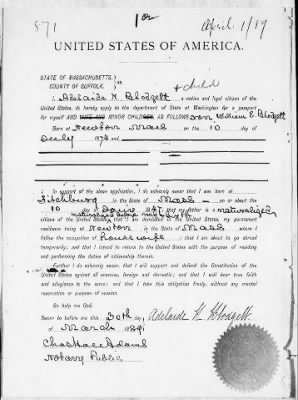 871
April 1/89
UNITED STATES OF AMERICA.
STATE OF MASSACHUSETTS,
COUNTY OF SUFFOLK.
+ child
I, Adelaide H. Blodgett a native and legal citizen of the
United States do hereby apply to the department of State at Washington for a passport
for myself AND MINOR CHILD AS FOLLOWS son William E. Blodgett
Born at Newton Mass on the 10 day of
July
In support of the above application, I do solemnly swear that I was born at
Fitchburg in the State of Mass on or about the
10 day of June
citizen of the United States, that I am domiciled in the United States, my permanent
residence being at Newton in the State of Mass where I
follow the occupation of housewife that I am about to go abroad
temporarily; and that I intend to return to the United States with the purpose of residing and
performing the duties of citizenship therein.
Further I do solemnly swear, that I will support and defend the Constitution of the
United States against all enemies, foreign and domestic; and that I will bear true faith
and allegiance to the same: and that I take this obligation freely, without any mental
reservation or purpose of evasion.
So help me God.
Sworn to before me this 30th day, Adelaide H. Blodgett
of March
Notary Public